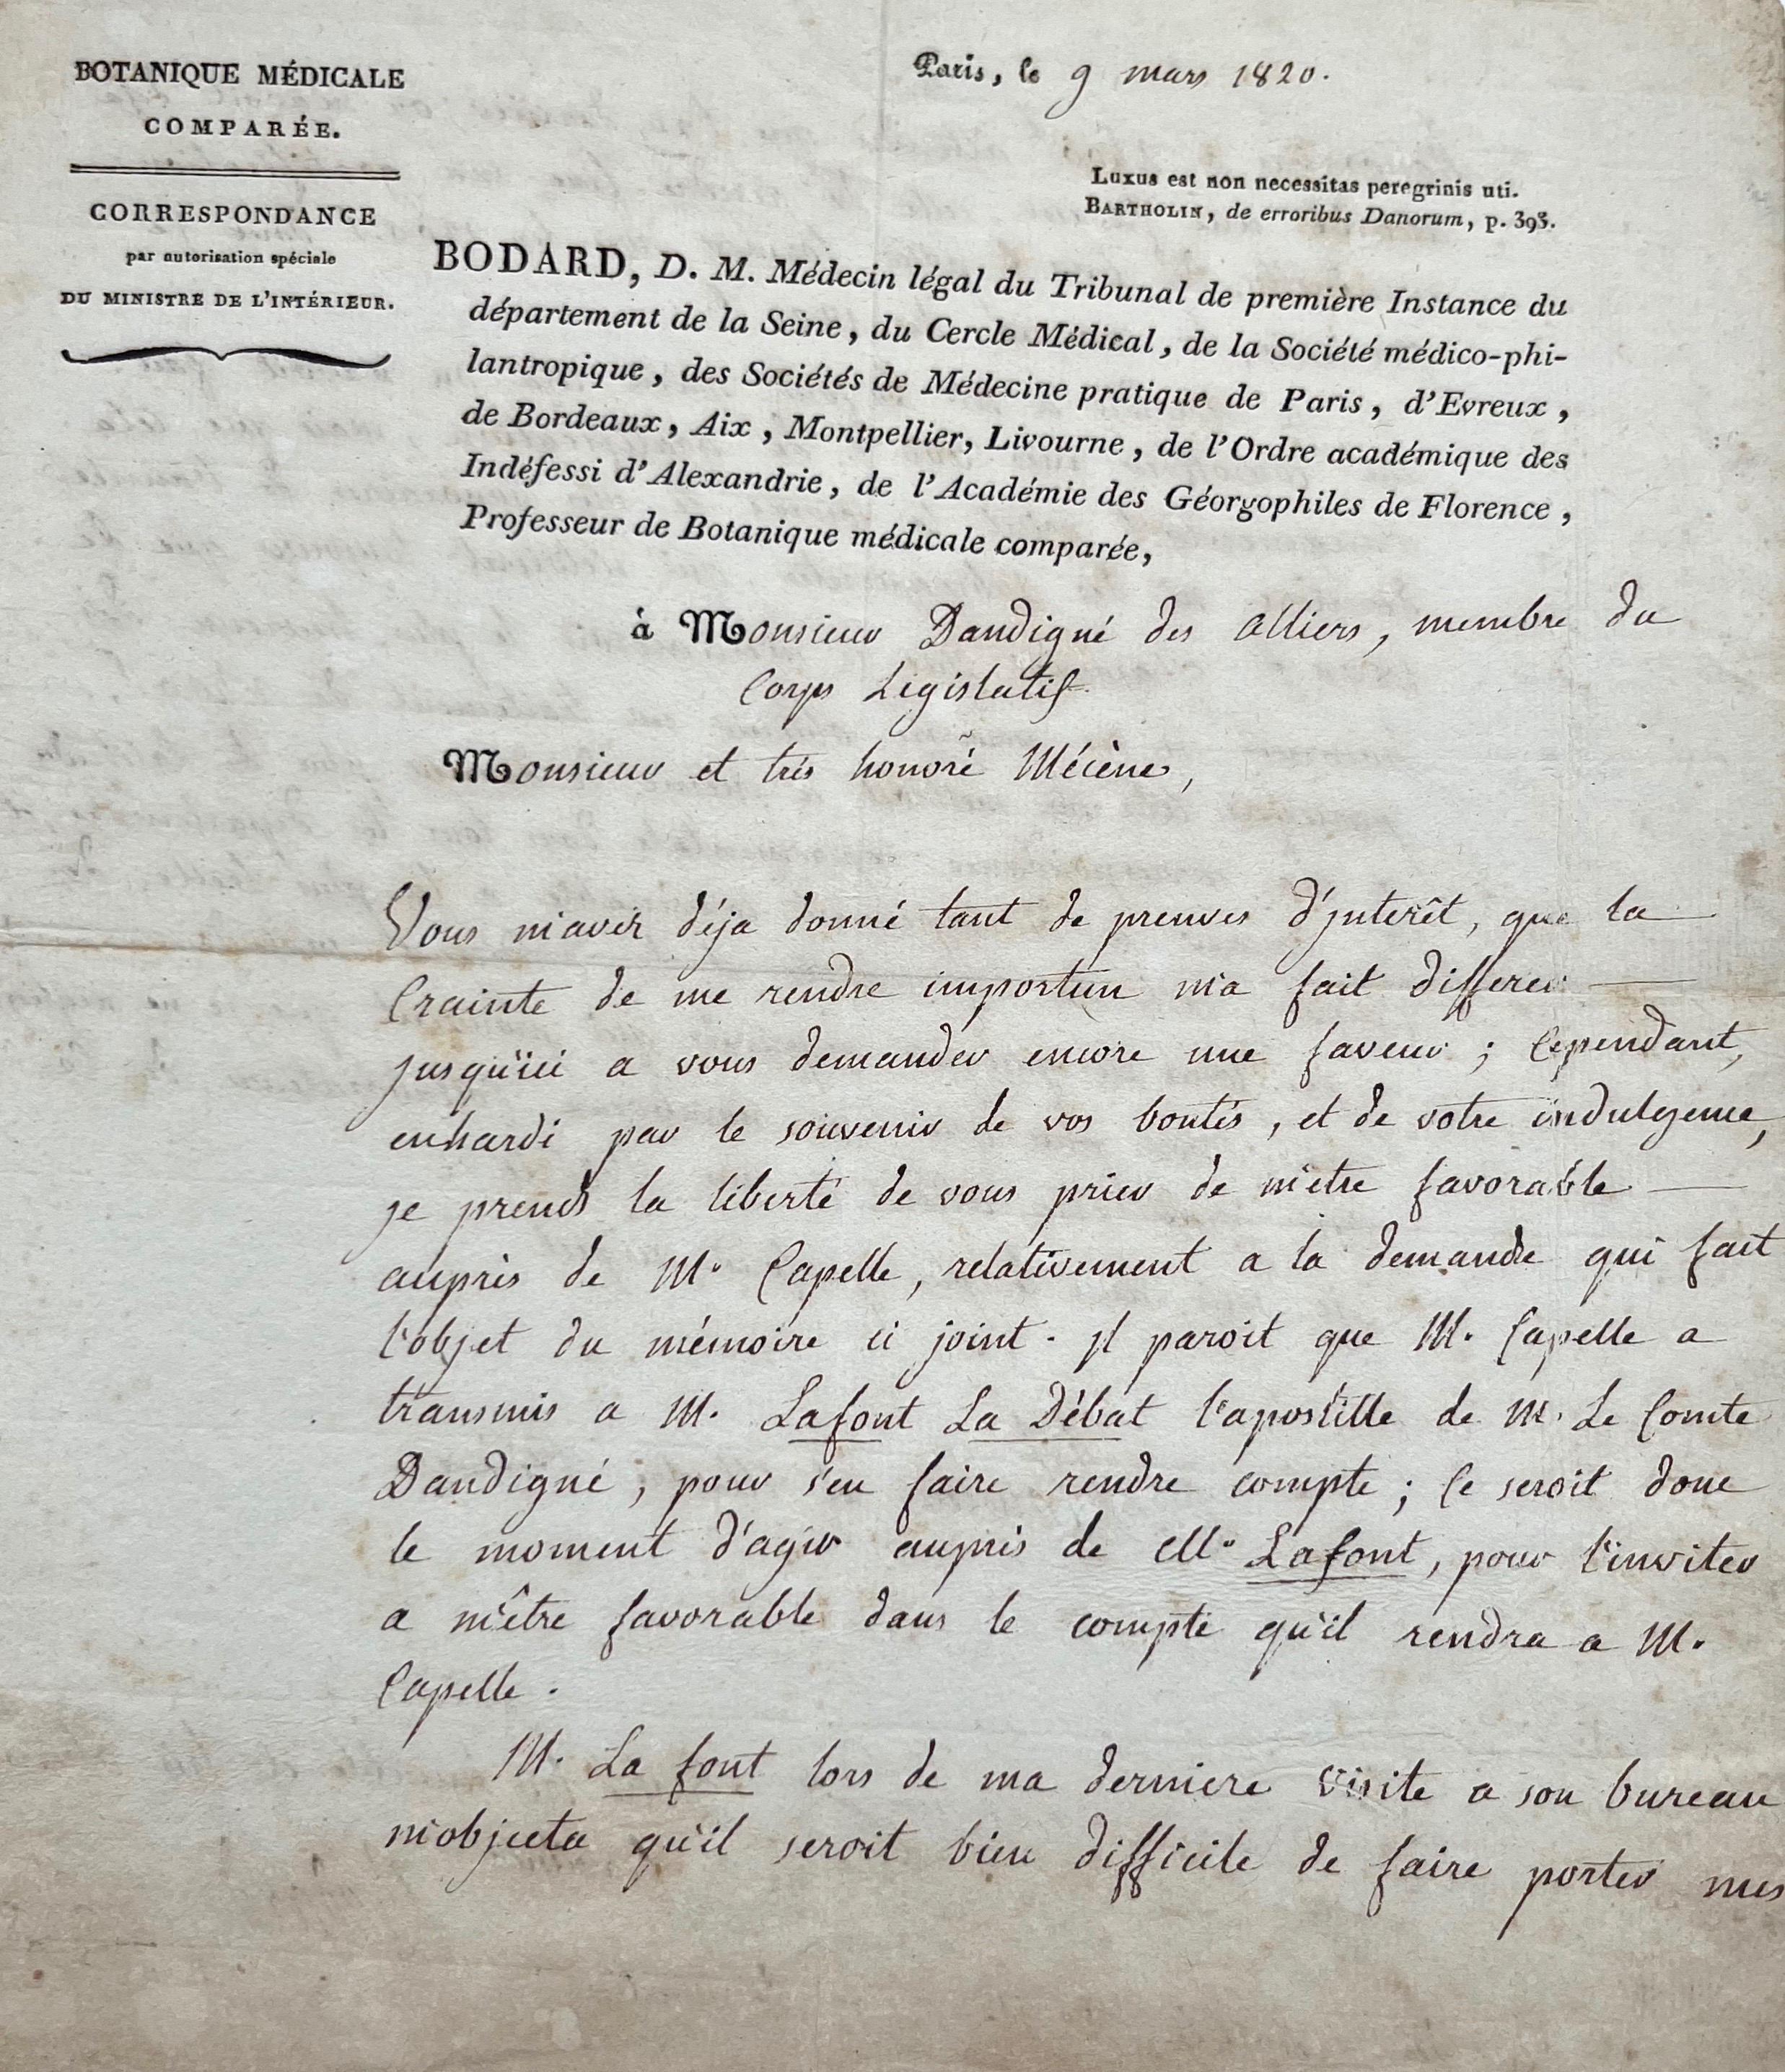 BOTANIQUE MÉDICALE
COMPARÉE.
CORRESPONDANCE
par autorisation spéciale
DU MINISTRE DE L'INTÉRIEUR.
Paris, le 9 mars 1820.
Luxus est non necessitas peregrinis uti.
BARTHOLIN, de erroribus Danorum, p. 393.
BODARD, D. M. Médecin légal du Tribunal de première Instance du
département de la Seine, du Cercle Médical, de la Société médico-phi-
lantropique, des Sociétés de Médecine pratique de Paris, d'Evreux,
de Bordeaux, Aix, Montpellier, Livourne, de l'Ordre académique des
Indéfessi d'Alexandrie, de l'Académie des Géorgophiles de Florence,
Professeur de Botanique médicale comparée,
à Monsieur Dandigné des alliers, membre du
Corps Législatif
Monsieur et très honoré Mécène,
Vous m'avez déja donné tant de preuves d'jnterêt, que la
Crainte de me rendre importun m'a fait differer
jusqu'ici a vous demander encore une faveur ; Cependant,
enhardi par le souvenir de vos bontés, et de votre indulgence,
je prends la liberté de vous prier de m'etre favorable
auprès de Mr Capelle, relativement a la demande qui fait
l'objet du mémoire ci joint. jl paroit que M. Capelle a
transmis a M. Lafont La Débat l'apostille de M. Le Comte
Dandigné, pour s'en faire rendre compte ; Ce seroit donc
le moment d'agir auprès de Mr Lafont, pour l'inviter
a m'être favorable dans le compte qu'il rendra a M.
Capelle.
M. La font lors de ma derniere visite a son bureau
m'objecta qu'il seroit bien difficile de faire porter mes